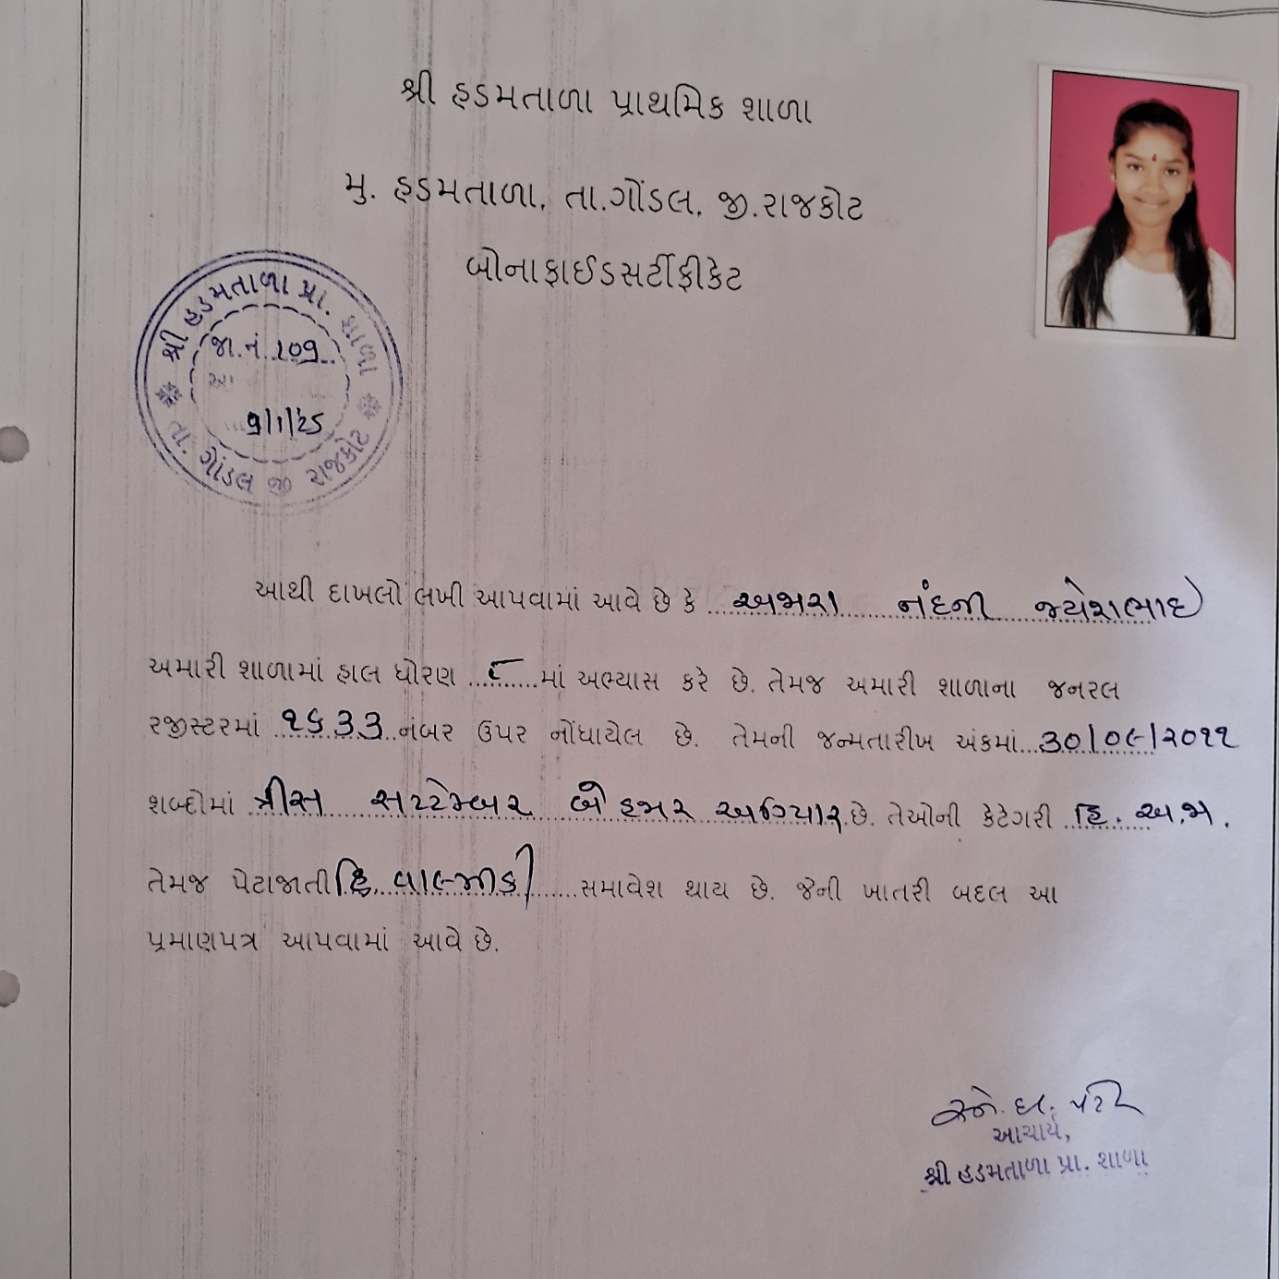 શ્રી હડમતાળા પ્રાથમિક શાળા
મુ. હડમતાળા, તા.ગોંડલ, જી.રાજકોટ
બોનાફાઈડસર્ટીફીકેટ
શ્રી હડમતાળા પ્રા. શાળા
જા.નં. ૨૦૧
૧/1/25
તા. ગોંડલ જી રાજકોટ
આથી દાખલો લખી આપવામાં આવે છે કે નંદની જયેશભાઇ
અમારી શાળામાં હાલ ધોરણ ૮ માં અભ્યાસ કરે છે. તેમજ અમારી શાળાના જનરલ
રજીસ્ટરમાં ૧૬૩૩ નંબર ઉપર નોંધાયેલ છે. તેમની જન્મતારીખ અંકમાં ૩૦/૦૯/૨૦૧૧
શબ્દોમાં ત્રીસ સપ્ટેમ્બર બે હજાર અગિયાર છે. તેઓની કેટેગરી હિ. અ.જા.
તેમજ પેટાજાતી હિ. વાલ્મીકી સમાવેશ થાય છે. જેની ખાતરી બદલ આ
પ્રમાણપત્ર આપવામાં આવે છે.
આચાર્ય,
શ્રી હડમતાળા પ્રા. શાળા